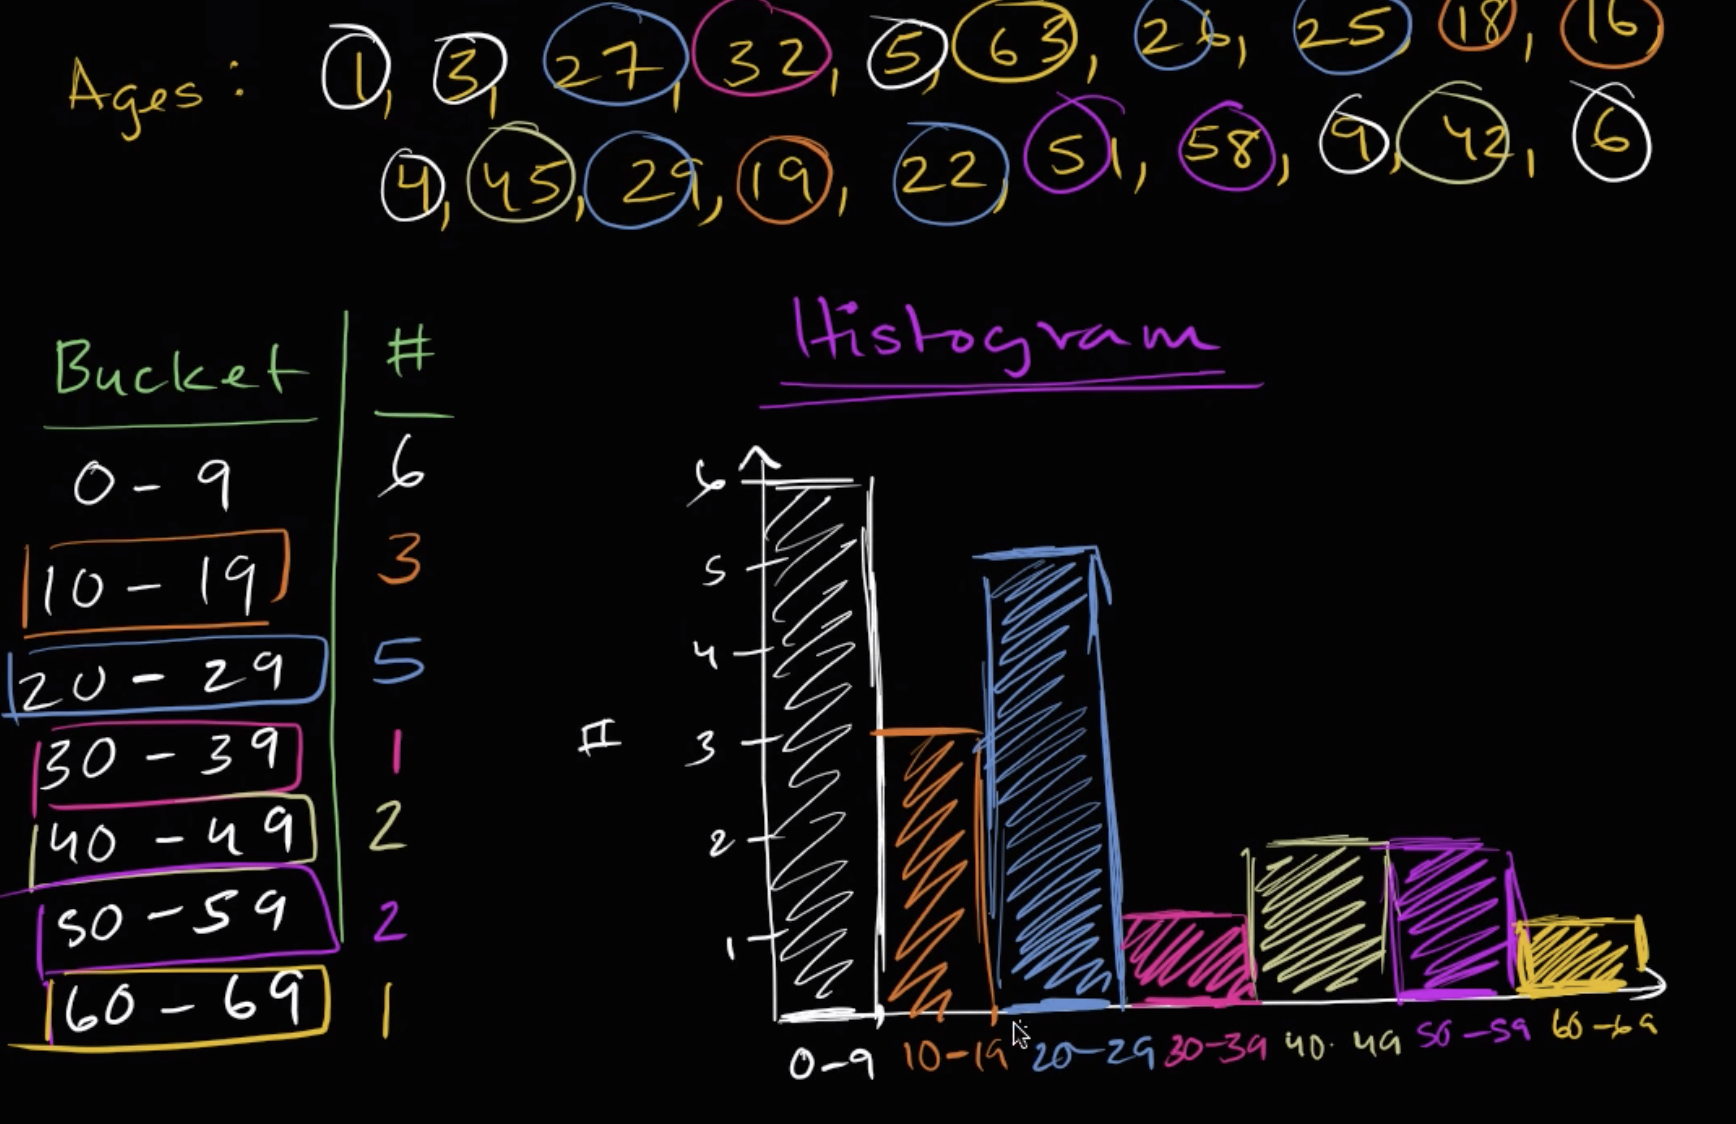 Ages: 1, 3, 27, 32, 5, 63, 26, 25, 18, 16
4, 45, 29, 19, 22, 51, 58, 9, 42, 6
Histogram
Bucket #
0-9 6
10-19 3
20-29 5
30-39 1
40-49 2
50-59 2
60-69 1
6
5
4
#
3
2
1
0-9 10-19 20-29 30-39 40-49 50-59 60-69